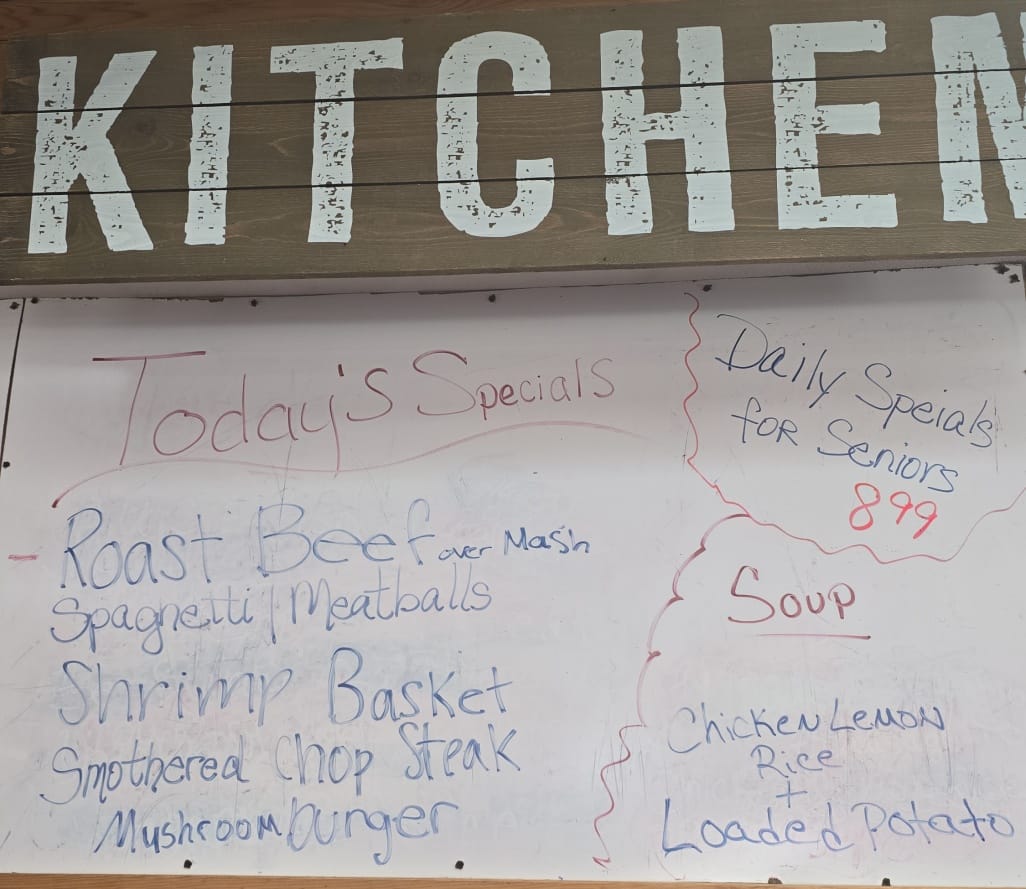 KITCHEN
Today's Specials
- Roast Beef over Mash
Spagnetti | Meatballs
Shrimp Basket
Smothered Chop Steak
Mushroom burger
Daily Speials
for Seniors
899
Soup
Chicken Lemon
Rice
+
Loaded Potato